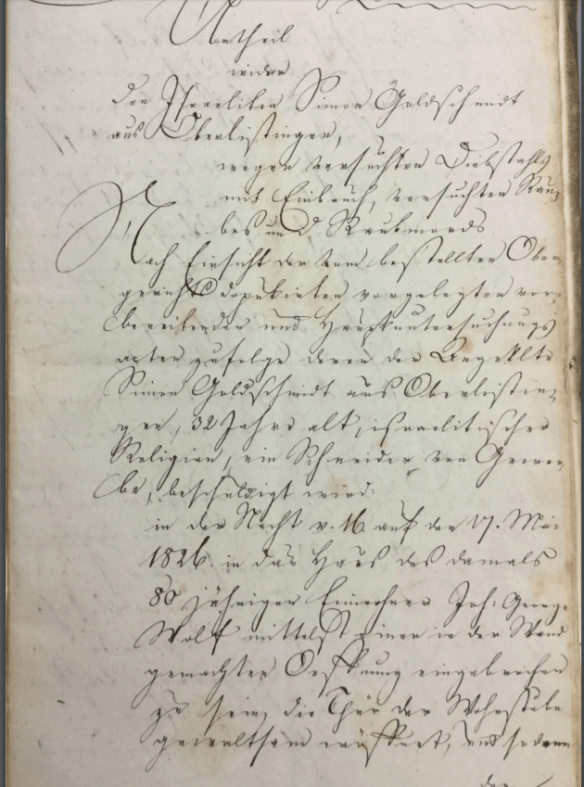 Urtheil
wider
den Israeliten Simon Goldschmidt
aus Oberlistingen,
wegen versuchten Diebstahls
mit Einbruch, versuchten Rau-
bes und Raubmords
Nach Einsicht der vom bestellten Ober-
gerichts deputirten vorgelegten vor-
bereitenden und Hauptuntersuchungs
acten zufolge deren der Angeklte
Simon Goldschmidt aus Oberlistin-
gen, 32 Jahre alt, israelitischer
Religion, ein Schneider von Gewer-
be, beschuldigt wird:
in der Nacht v. 16. auf den 17. Mai
1826. in das Haus des damals
80 jährigen Einwohners Joh: George
Wolf mittelst einer in der Wand
gemachten Oeffnung eingebrochen
zu sein, die Thür der Wohnstube
gewaltsam eröffnet, und sodann